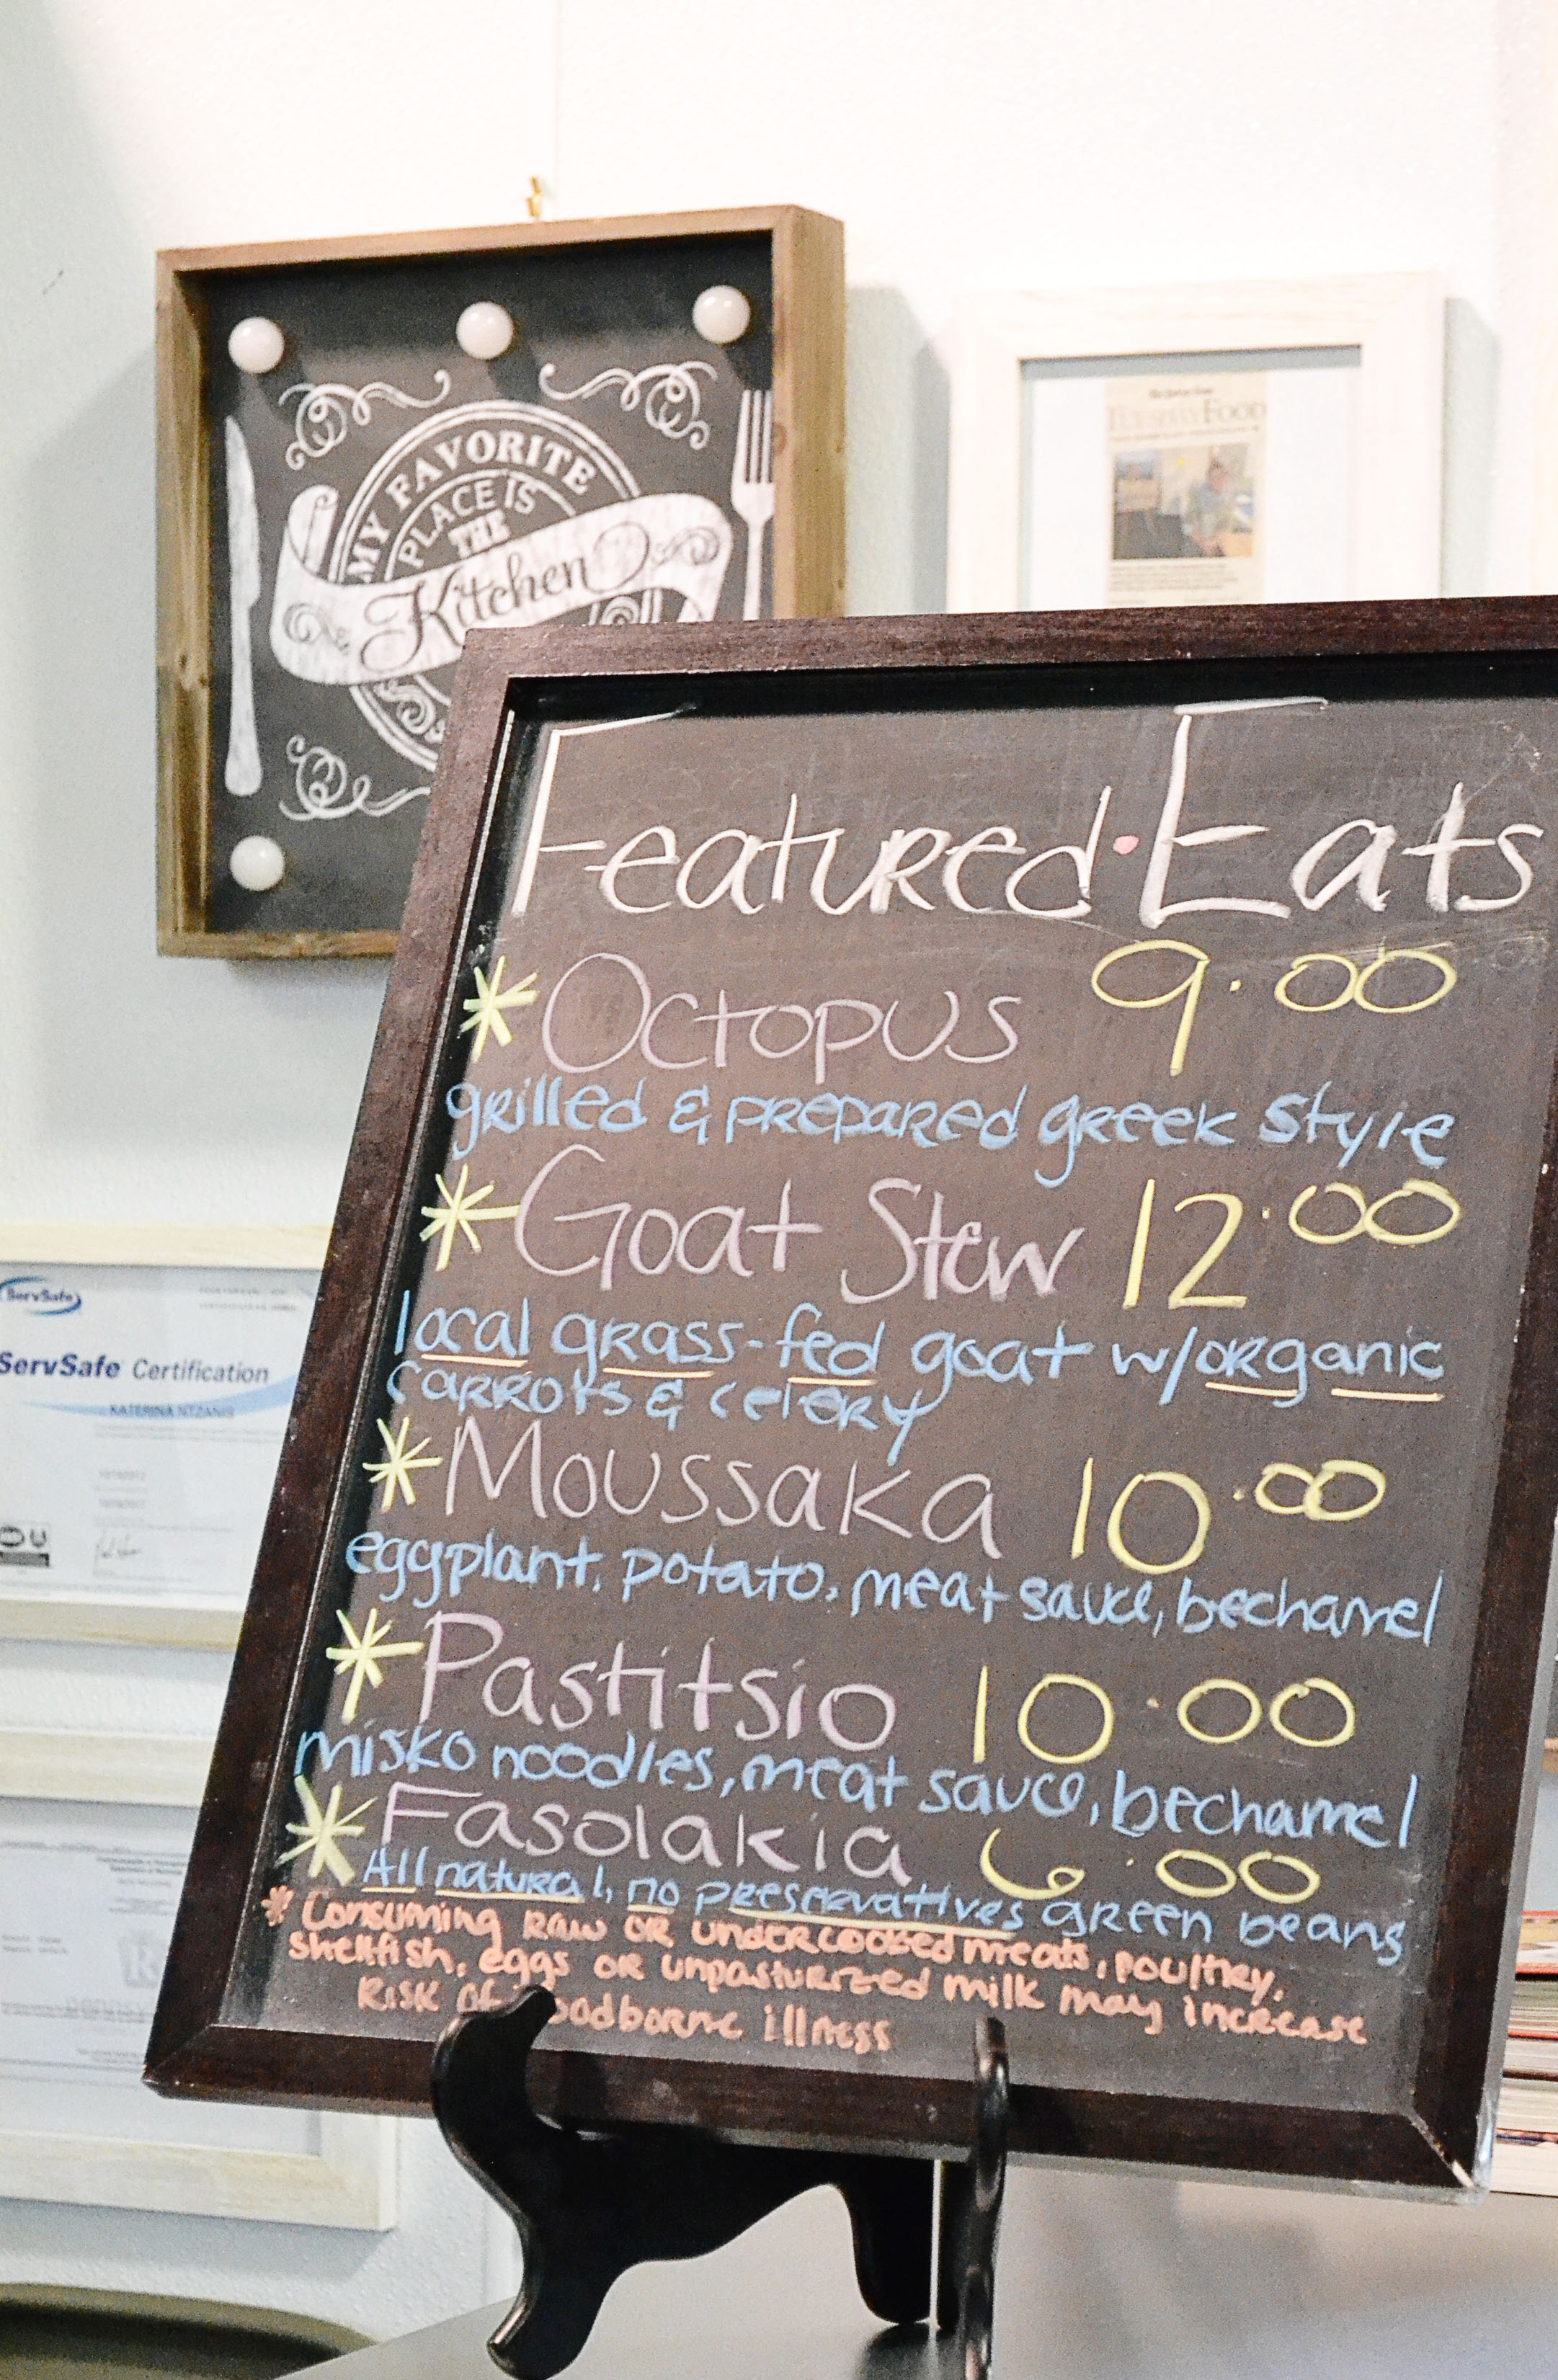 MY FAVORITE
PLACE IS
THE
Kitchen
TUESDAY FOOD
Featured Eats
* Octopus 9.00
grilled & prepared greek style
* Goat Stew 12.00
local grass-fed goat w/organic
carrots & celery
* Moussaka 10.00
eggplant, potato, meat sauce, bechamel
* Pastitsio 10.00
misko noodles, meat sauce, bechamel
* Fasolakia 6.00
All natural, no preservatives green beans
* Consuming raw or undercooked meats, poultry,
shellfish, eggs or unpasturized milk may increase
risk of foodborne illness
ServSafe
ServSafe Certification
KATERINA NTZANIS